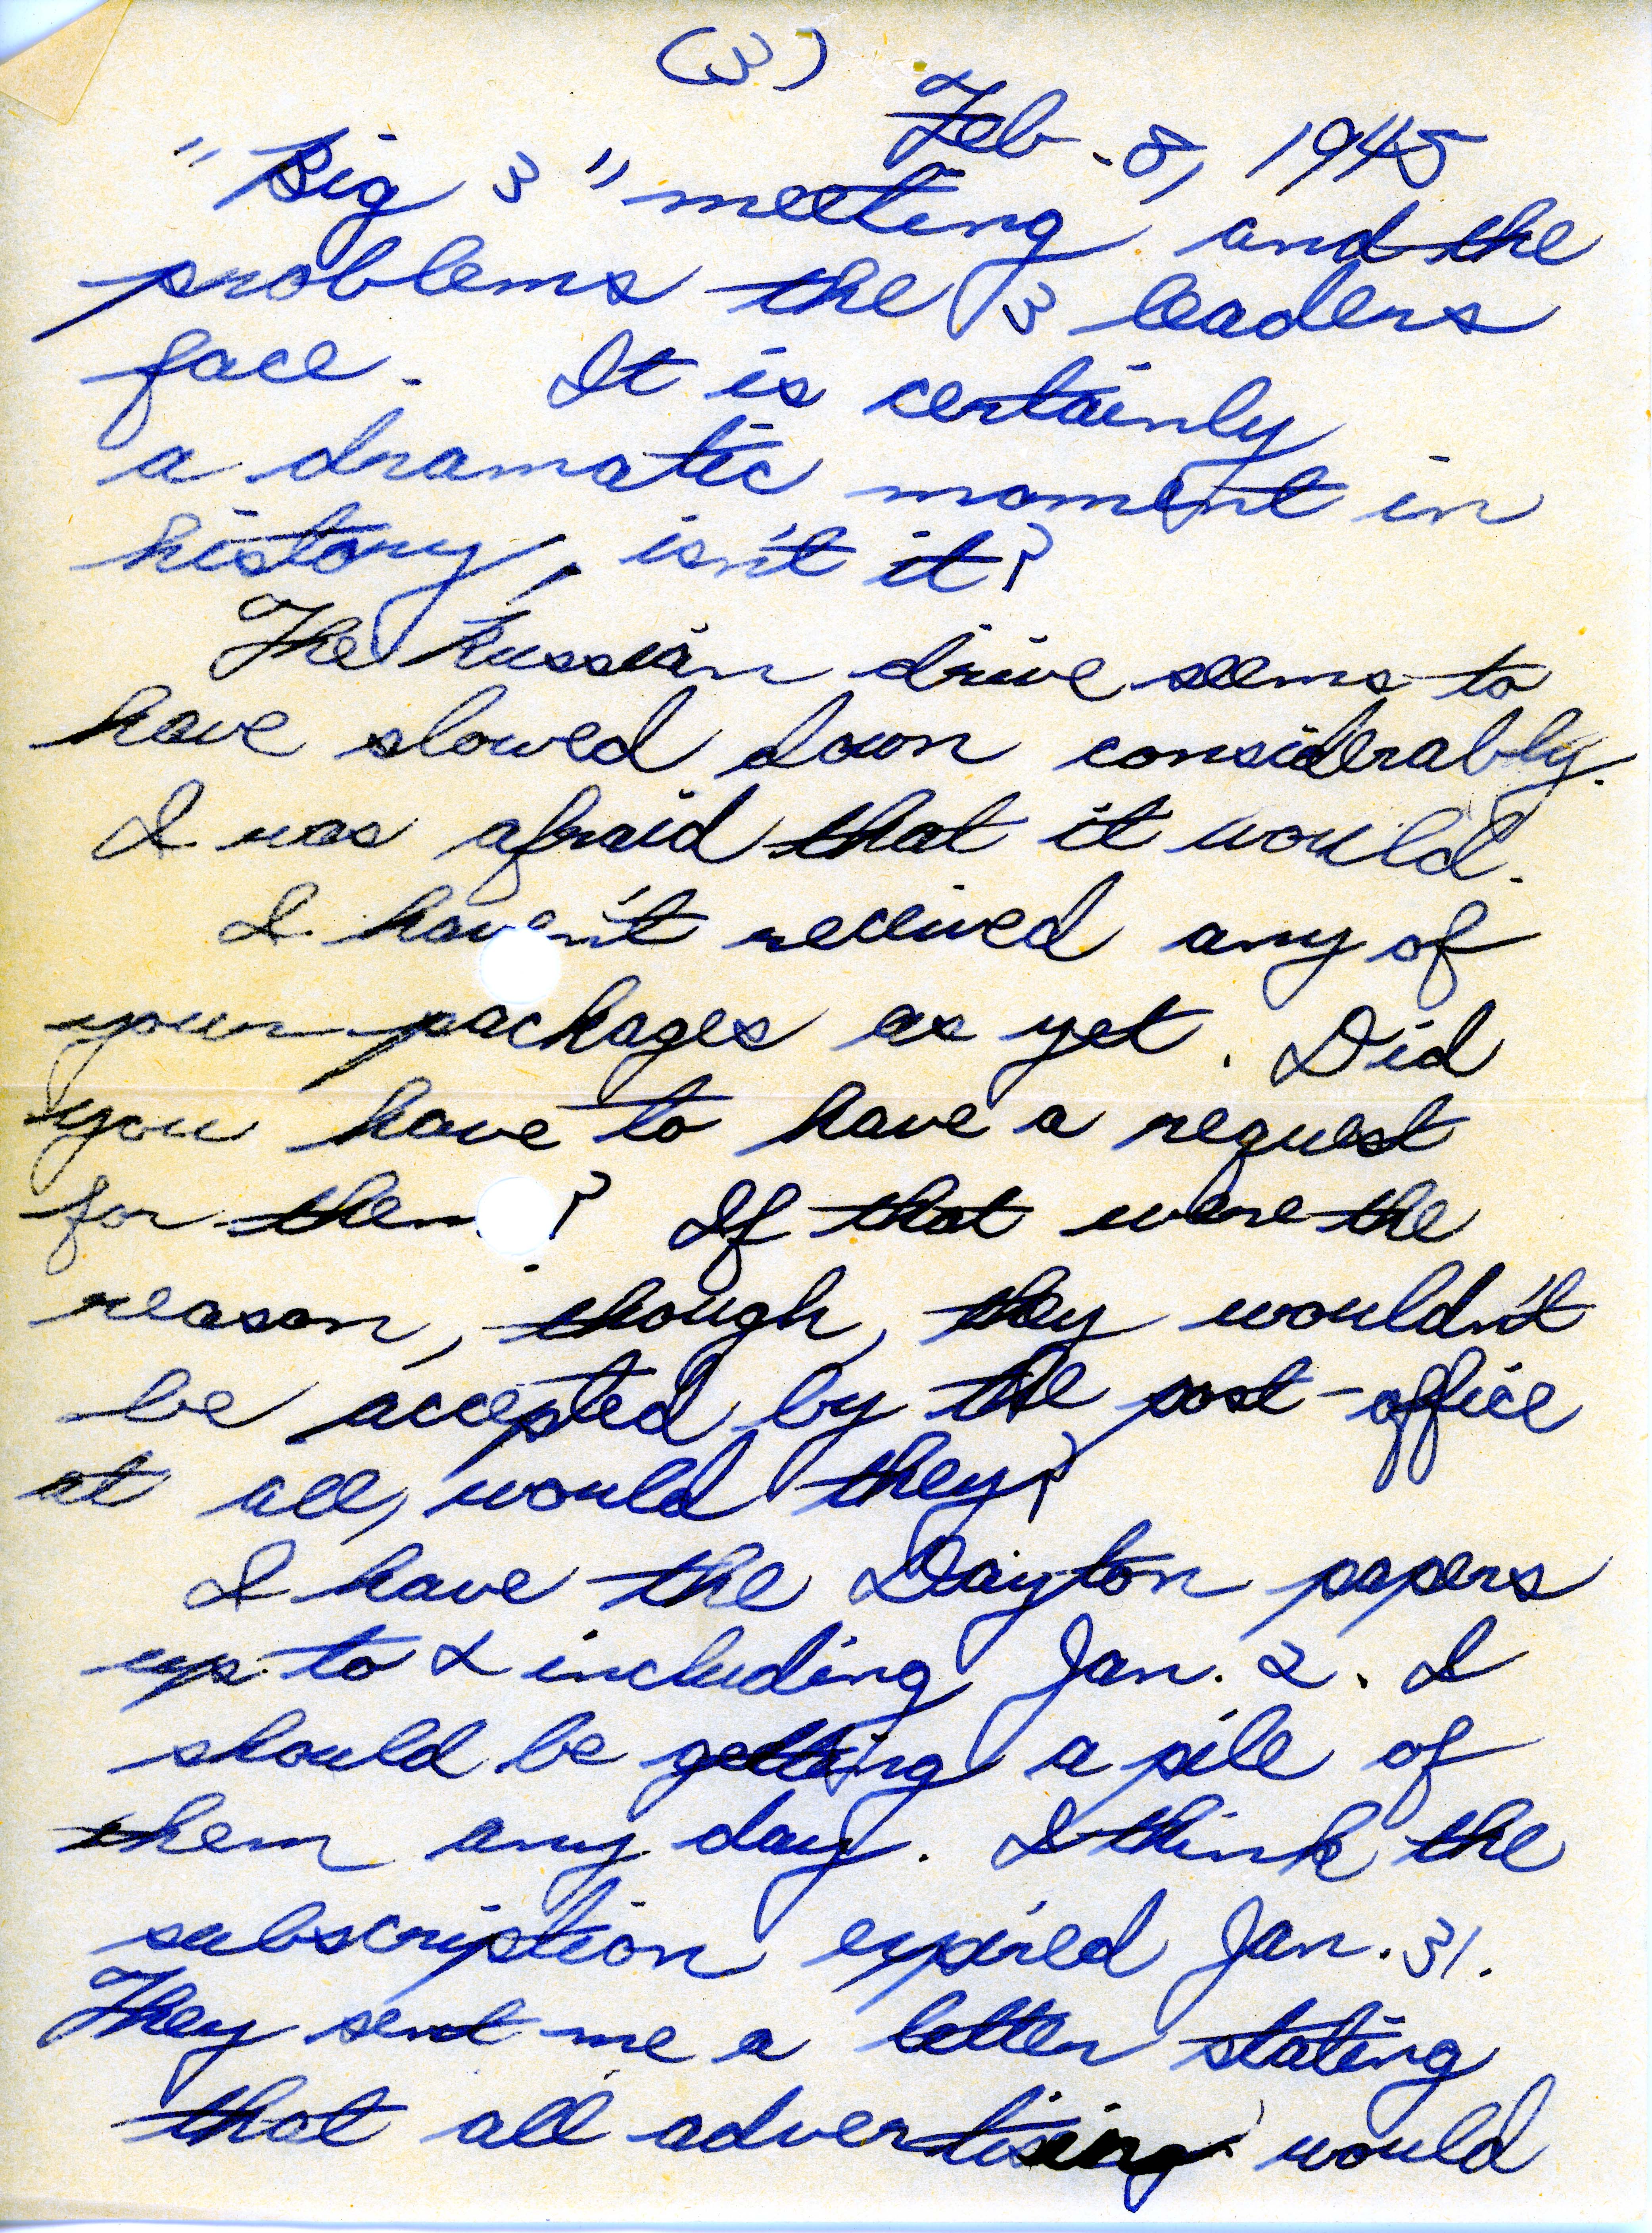 (3)
Feb. 8, 1945
"Big 3" meeting and the
problems the 3 leaders
face. It is certainly
a dramatic moment in
history, isn't it?
The Russian drive seems to
have slowed down considerably.
I was afraid that it would.
I haven't received any of
your packages as yet. Did
you have to have a request
for them? If that were the
reason, though, they wouldn't
be accepted by the post-office
at all, would they?
I have the Dayton papers
up to & including Jan. 2. I
should be getting a pile of
them any day. I think the
subscription expired Jan. 31.
They sent me a letter stating
that all advertising would